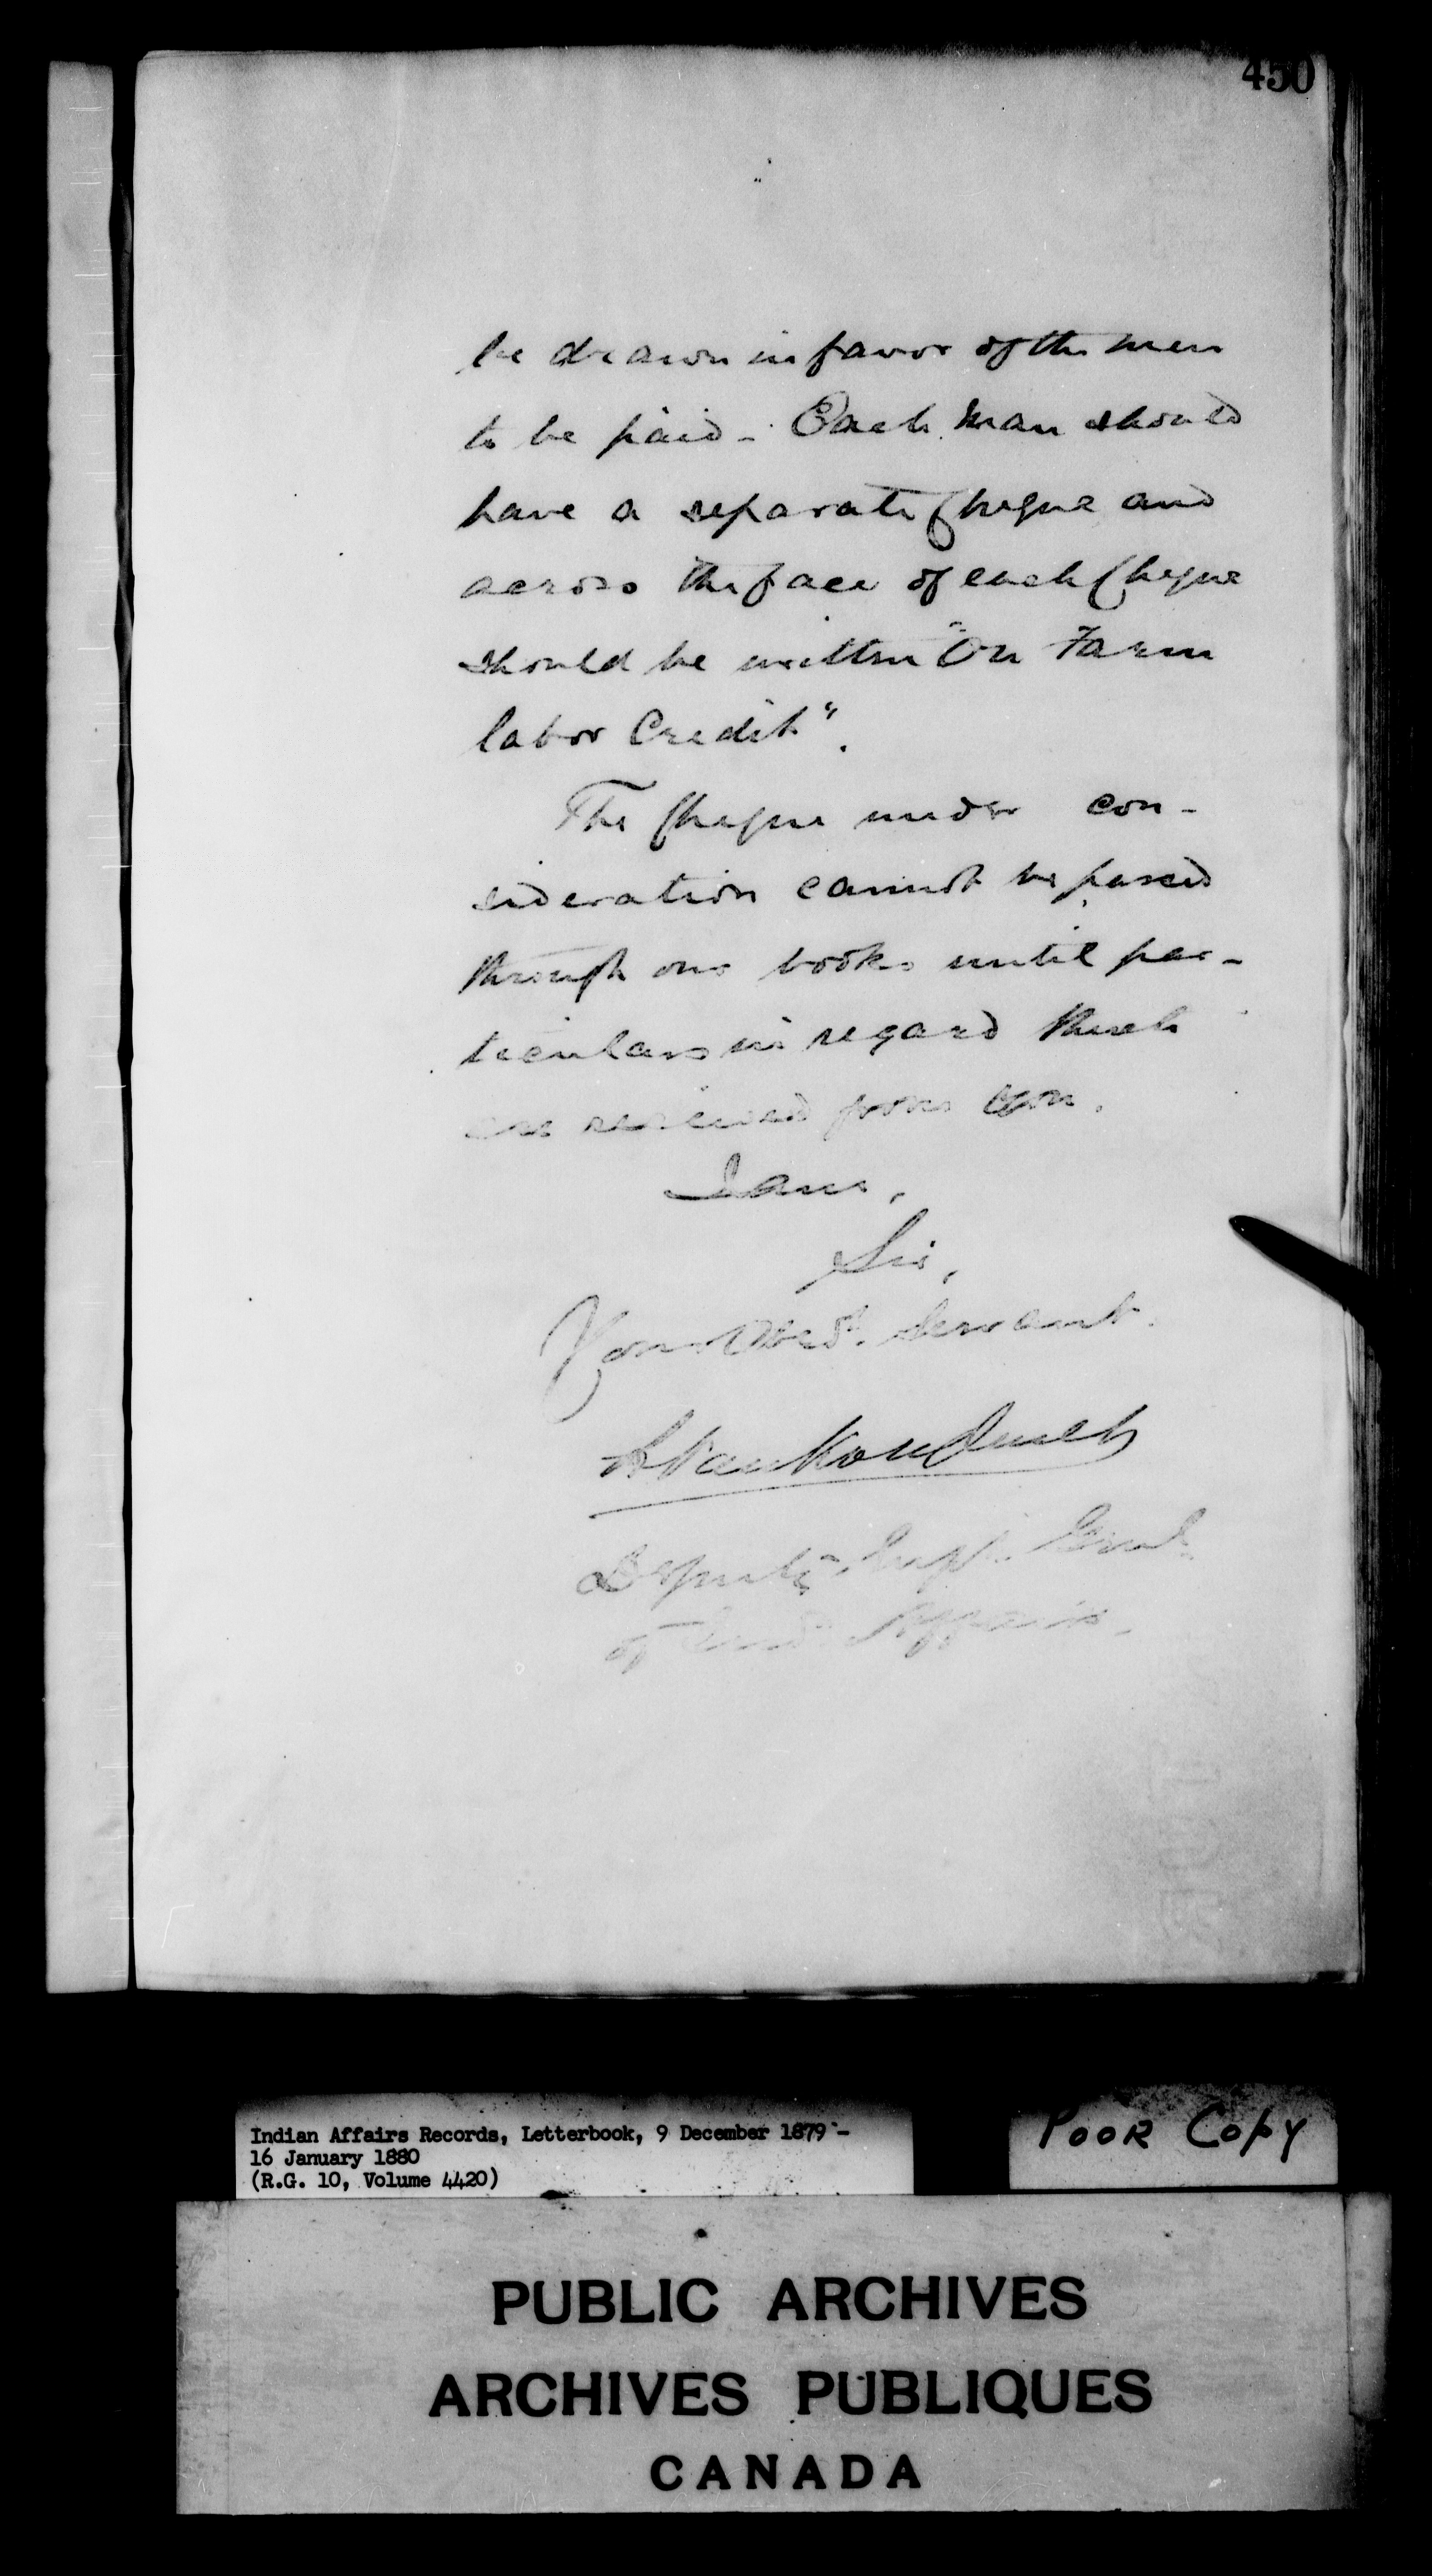 450
be drawn in favor of the men
to be paid - Each man should
have a separate Cheque and
across the face of each Cheque
should be written "On Farm
labor Credit".
The Cheque under con-
sideration cannot be passed
through our books until par-
ticulars in regard thereto
are received from you.
I am,
Sir,
Your Obedt. Servant.
L VanKoughnet
Deputy Supt. Genl.
of Ind. Affairs.
Indian Affairs Records, Letterbook, 9 December 1879 -
16 January 1880
(R.G. 10, Volume 4420)
POOR COPY
PUBLIC ARCHIVES
ARCHIVES PUBLIQUES
CANADA